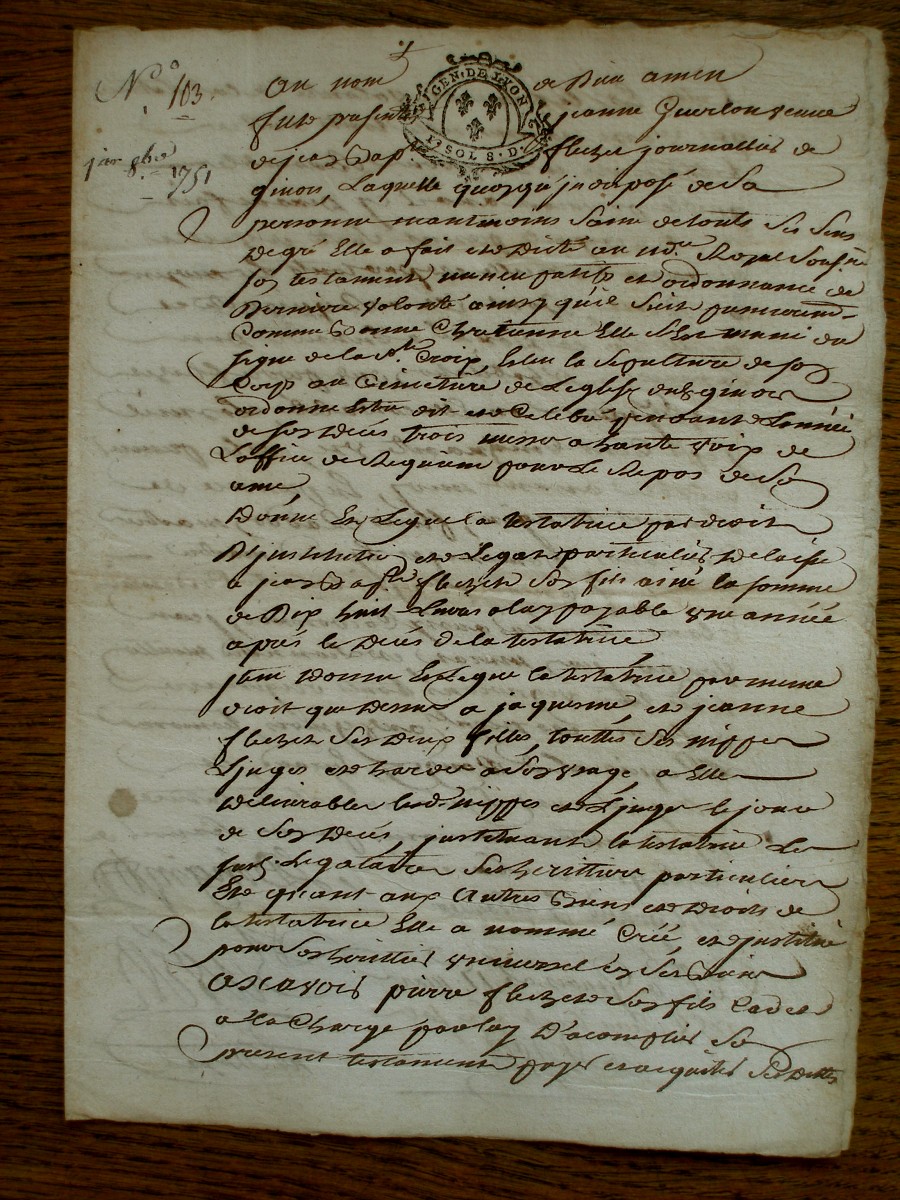 N.° 103.
1751
GEN. DE LYON
SOLS 8. D.
Au nom de Dieu amen
fut presente jeanne veuve
de jean Bap.te flechet journallier de
laquelle quoyqu'indisposé de Sa
personne neantmoins Saine de touts Ses Sens
de gré Elle a fait et Dicté au no.re Royal Sousig.né
Son testament nuncupatif et ordonnance de
Derniere volonté ainsy quil Suit premierem.t
Comme Bonne Chretienne Elle S'est muni du
Signe de la S.te Croix, Eslu la Sepulture de Son
Corps au Cimetiere de Leglise
ordonne Estre dit et Celebré pendant L'année
de Son Deces trois messe a haute voix de
L'office de Requiem pour Le Repos de Sa
ame
Donne Et Legue la testatrice par droit
D'institution et Legat particulier Delaisse
a jean Bap.te flechet Son fils ainé la somme
de Dix huit Livres a luy payable une année
après le Deces de la testatrice
jtem Donne Et Legue la testatrice par meme
droit que Dessus a jaquesme et jeanne
flechet Ses Deux filles, touttes Ses nippes
Linges et hardes a Son Usage, a Elles
Delivrables lesd. nippes et Linges le jour
de Son Deces, justituant la testatrice Les
Susd. Legataires Ses herittiers particuliers
Et quant aux Autres Biens et Droits de
la testatrice Elle a nommé Créé, et justitué
pour Son herittier universel en Ses Biens
a Scavoir pierre flechet Son fils Cadet
a la Charge par luy D'acomplir Son
present testament payer et acquiter Ses Dettes